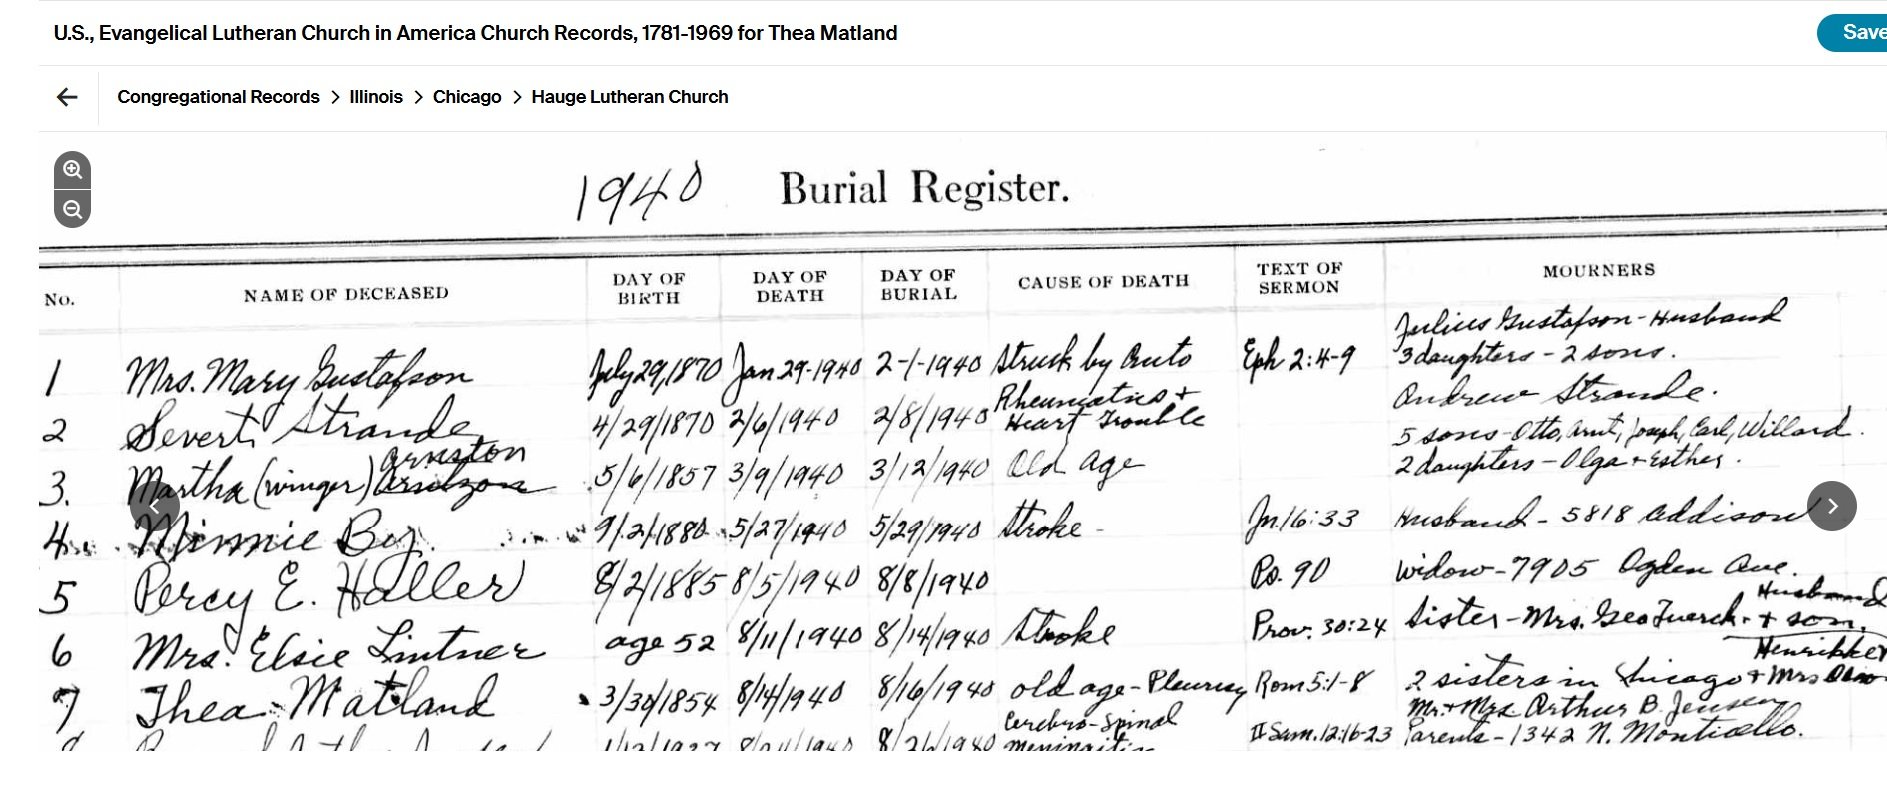 U.S., Evangelical Lutheran Church in America Church Records, 1781-1969 for Thea Matland
Save
Congregational Records > Illinois > Chicago > Hauge Lutheran Church
1940 Burial Register.
No. NAME OF DECEASED DAY OF BIRTH DAY OF DEATH DAY OF BURIAL CAUSE OF DEATH TEXT OF SERMON MOURNERS
Julius Gustafson - Husband
1 Mrs. Mary Gustafson July 29, 1870 Jan 29-1940 2-1-1940 Struck by Auto Eph 2:4-9 3 daughters - 2 sons.
2 Severt Strande 4/29/1870 2/6/1940 2/8/1940 Rheumatics + Heart Trouble Andrew Strande.
5 sons - Otto, Arnt, Joseph, Carl, Willard.
3. Martha (winger) Arnston 5/6/1857 3/9/1940 3/12/1940 Old Age 2 daughters - Olga + Esther.
4. Minnie Boy. 9/2/1880 5/27/1940 5/29/1940 Stroke - Jn. 16:33 Husband - 5818 Addison
5 Percy E. Haller 8/2/1885 8/5/1940 8/8/1940 Ps. 90 widow - 7905 Ogden Ave.
Husband
6 Mrs. Elsie Lintner age 52 8/11/1940 8/14/1940 Stroke Prov. 30:24 Sister - Mrs. Geo + son.
Henrikken
7 Thea Matland 3/30/1854 8/14/1940 8/16/1940 old age - Pleurisy Rom 5:1-8 2 sisters in Chicago + Mrs
Mr. + Mrs. Arthur B. Jensen
Cerebro-Spinal
II Sam. 12:16-23 Parents - 1342 N. Monticello.